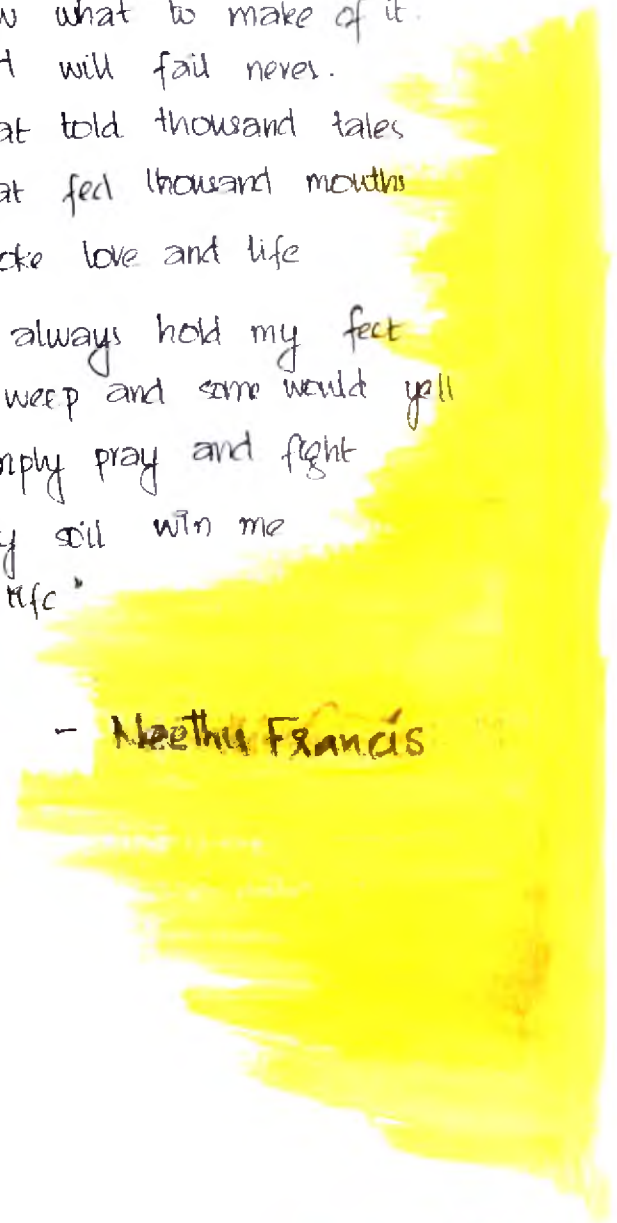 what to make of it.
will fail never.
told thousand tales
fed thousand mouths
love and life
always hold my feet
weep and some would yell
pray and fight
soil win me
- Neethu Francis